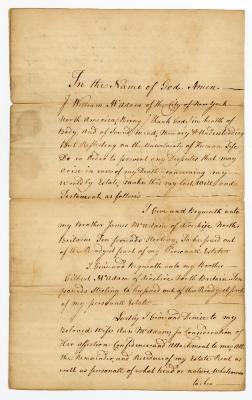 In the Name of God. Amen.
I William McAdam of the City of New York
North America, Being thank God, in health of
Body, And of Sound mind, Memory & Understanding
But Reflecting on the Uncertainty of Human Life
Do in Order to prevent any Disputes that may
arise in case of my Death concerning my
worldly Estate, make this my last Will and
Testament as follows
I Give and Bequeath unto
my brother James McAdam of Airshire North
Britain Ten pounds Sterling, to be paid out
of the Readyest part of my Personall Estate
I Give and Bequeath unto my brother
Gilbert McAdam of Airshire North Britain Ten
pounds Sterling to be paid out of the Readyest part
of my personall Estate
Lastly I Give and Devise to my
Beloved Wife Ann McAdam, in Consideration of
Her affection Confidence and Attachment to me, All
the Remainder, and Residue of my Estate Real as
well as personall of what kind or nature Whatsoever
to her